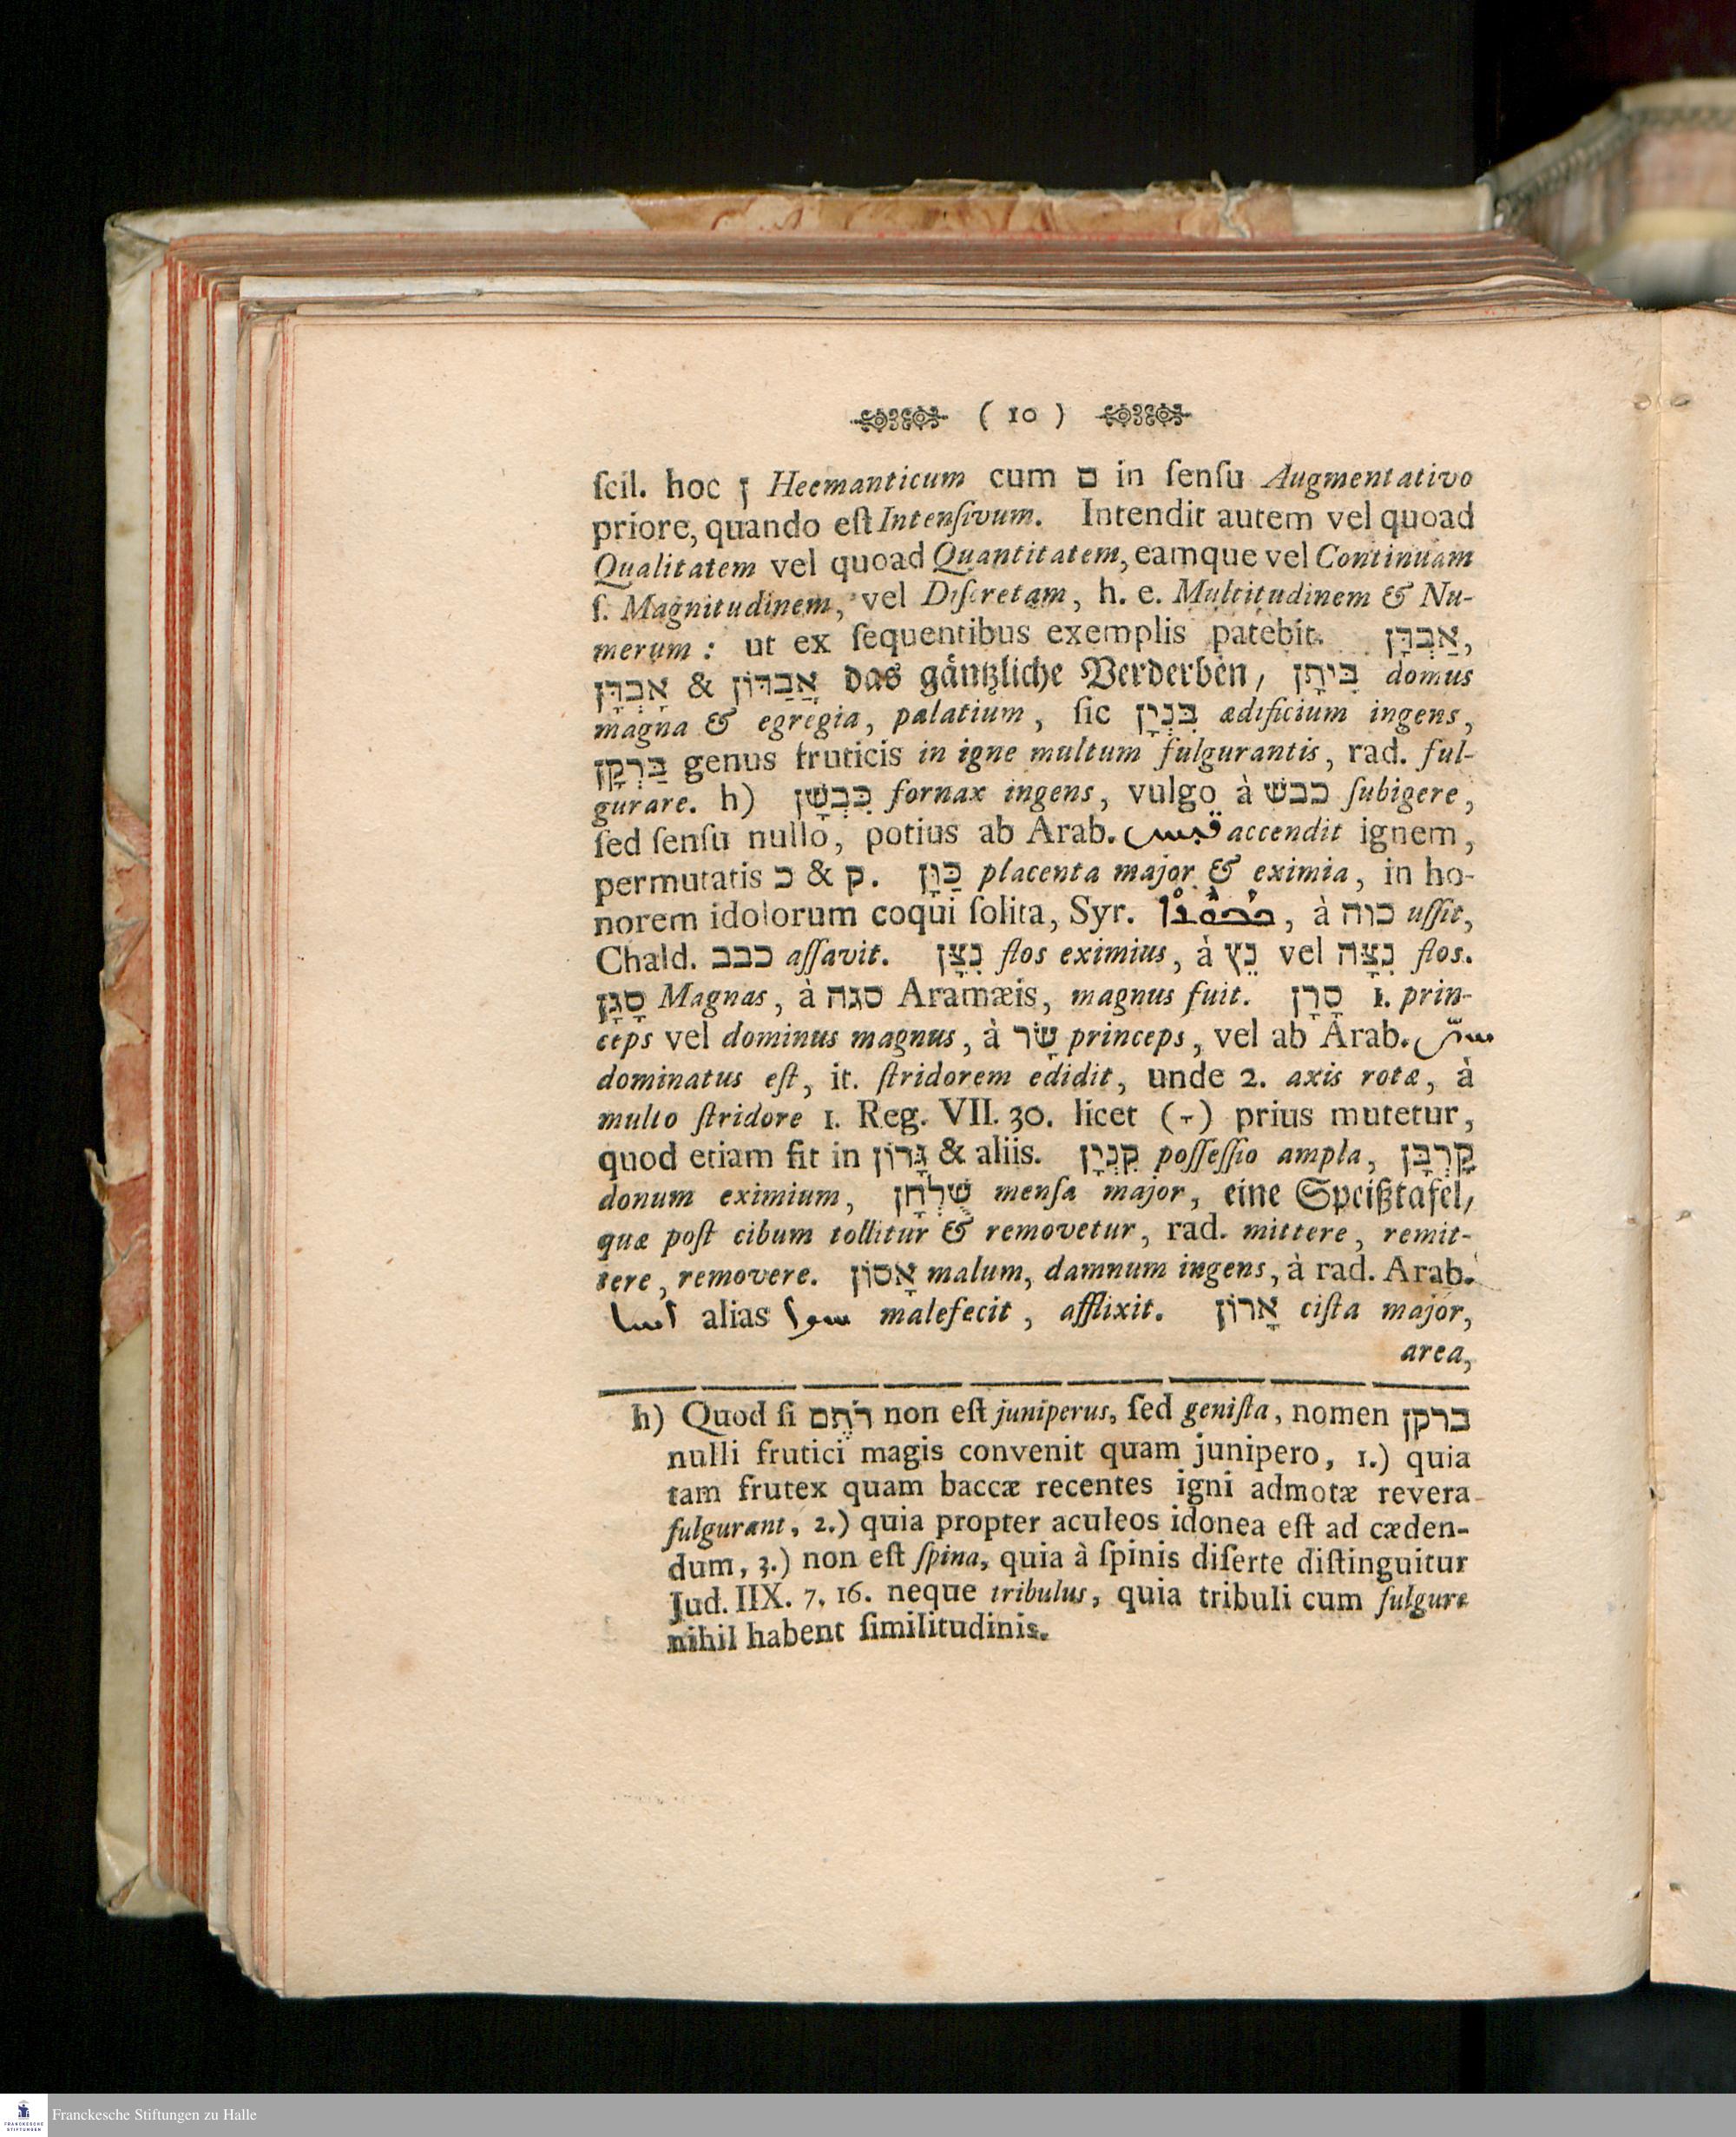 ( 10 )
ſcil. hoc ן Heemanticum cum ם in ſenſu Augmentativo
priore, quando eſt Intenſivum. Intendit autem vel quoad
Qualitatem vel quoad Quantitatem, eamque vel Continuam
ſ. Magnitudinem, vel Diſcretam, h. e. Multitudinem & Nu-
merum: ut ex ſequentibus exemplis patebit. אַבְדָּן,
אָבְדָּן & אֲבַדּוֹן das gäntzliche Verderben, בִּיתָן domus
magna & egregia, palatium, ſic בִּנְיָן ædificium ingens,
בַּרְקָן genus fruticis in igne multum fulgurantis, rad. ful-
gurare. h) כִּבְשָׁן fornax ingens, vulgo à כבש ſubigere,
ſed ſenſu nullo, potius ab Arab. قبس accendit ignem,
permutatis כ & ק. כַּוָּן placenta major & eximia, in ho-
norem idolorum coqui ſolita, Syr. , à כוה uſſit,
Chald. כבב aſſavit. נִצָּן flos eximius, à נֵץ vel נִצָּה flos.
סָגָן Magnas, à סגה Aramæis, magnus fuit. סָרָן 1. prin-
ceps vel dominus magnus, à שַׂר princeps, vel ab Arab. سرّ
dominatus eſt, it. ſtridorem edidit, unde 2. axis rotæ, à
multo ſtridore 1. Reg. VII. 30. licet (־ָ) prius mutetur,
quod etiam fit in גָּרוֹן & aliis. קִנְיָן poſſeſſio ampla, קָרְבָּן
donum eximium, שֻׁלְחָן menſa major, eine Speißtafel,
quæ poſt cibum tollitur & removetur, rad. mittere, remit-
tere, removere. אָסוֹן malum, damnum ingens, à rad. Arab.
اسا alias سوا malefecit, afflixit. אָרוֹן ciſta major,
area,
h) Quod ſi רֹתֶם non eſt juniperus, ſed geniſta, nomen ברקן
nulli frutici magis convenit quam junipero, 1.) quia
tam frutex quam baccæ recentes igni admotæ revera
fulgurant, 2.) quia propter aculeos idonea eſt ad cæden-
dum, 3.) non eſt ſpina, quia à ſpinis diſerte diſtinguitur
Jud. IIX. 7, 16. neque tribulus, quia tribuli cum fulgure
nihil habent ſimilitudinis.
Franckesche Stiftungen zu Halle